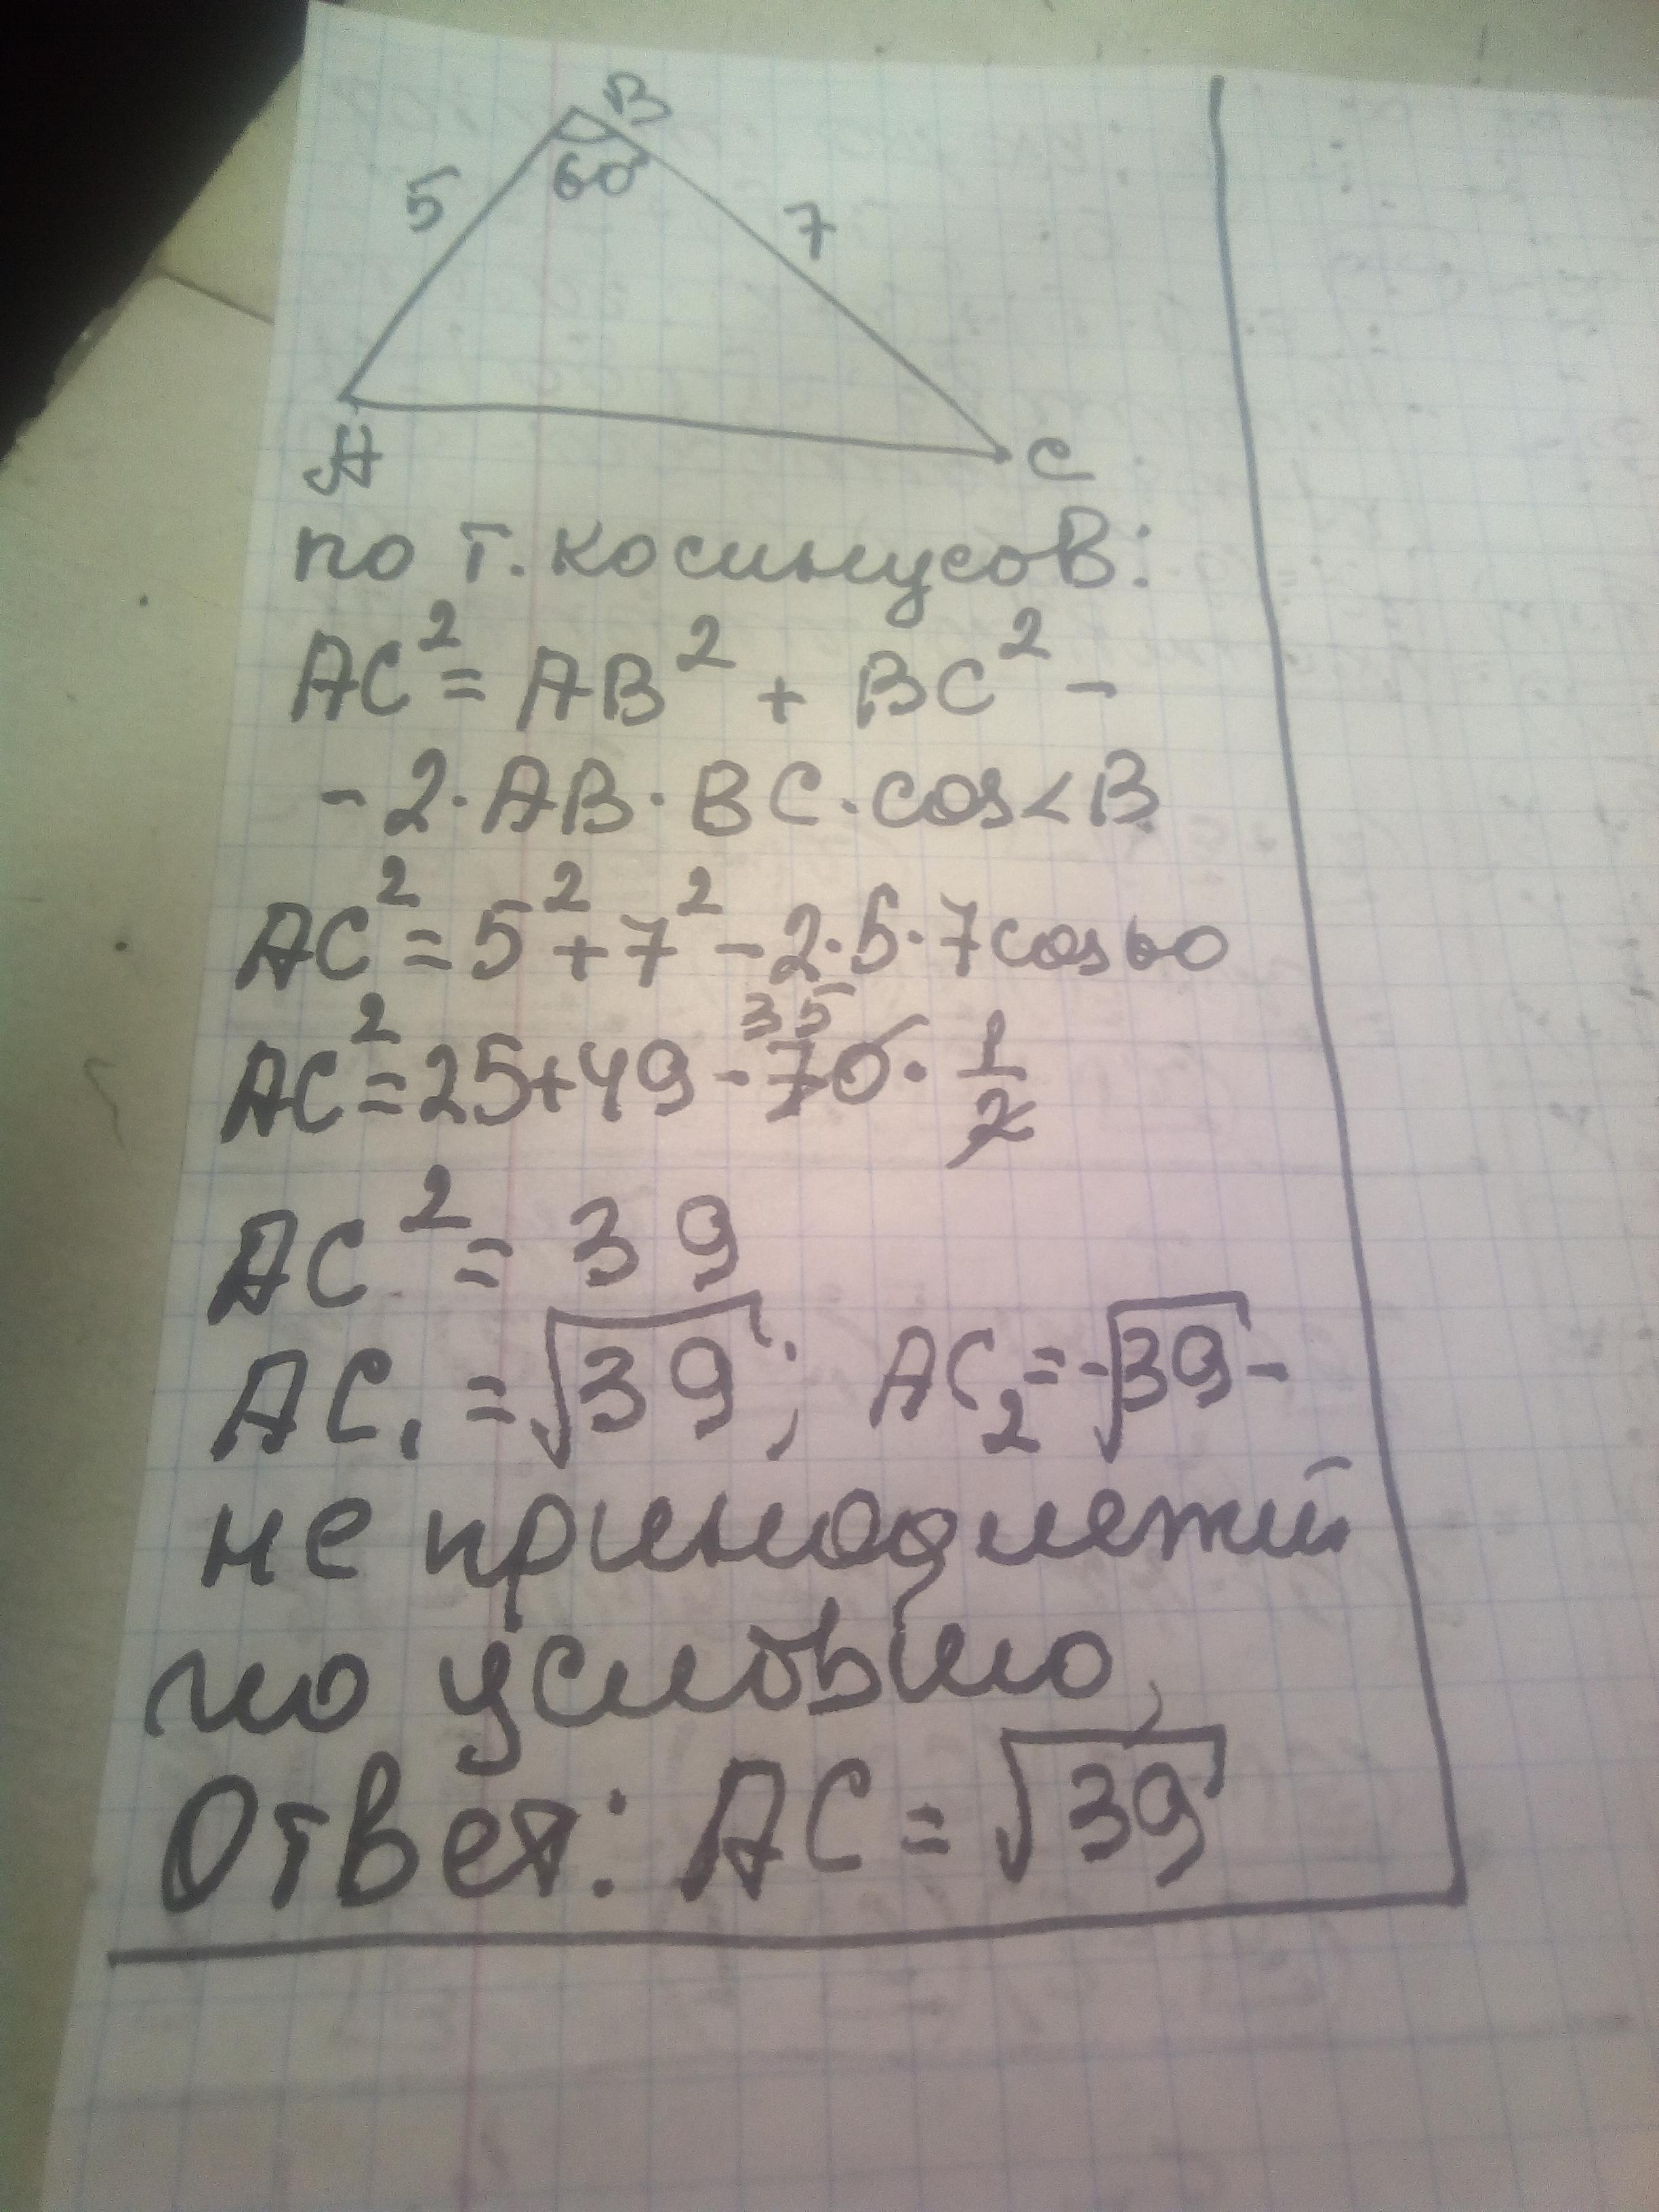 B
60°
5
7
A
C
по т. косинусов:
AC² = AB² + BC² -
- 2 · AB · BC · cos < B
AC² = 5² + 7² - 2 · 5 · 7 cos 60
35
AC² = 25 + 49 - 70 · 1/2
AC² = 39
AC₁ = √39 ; AC₂ = -√39 -
не принодлежит
по условию,
Ответ: AC = √39